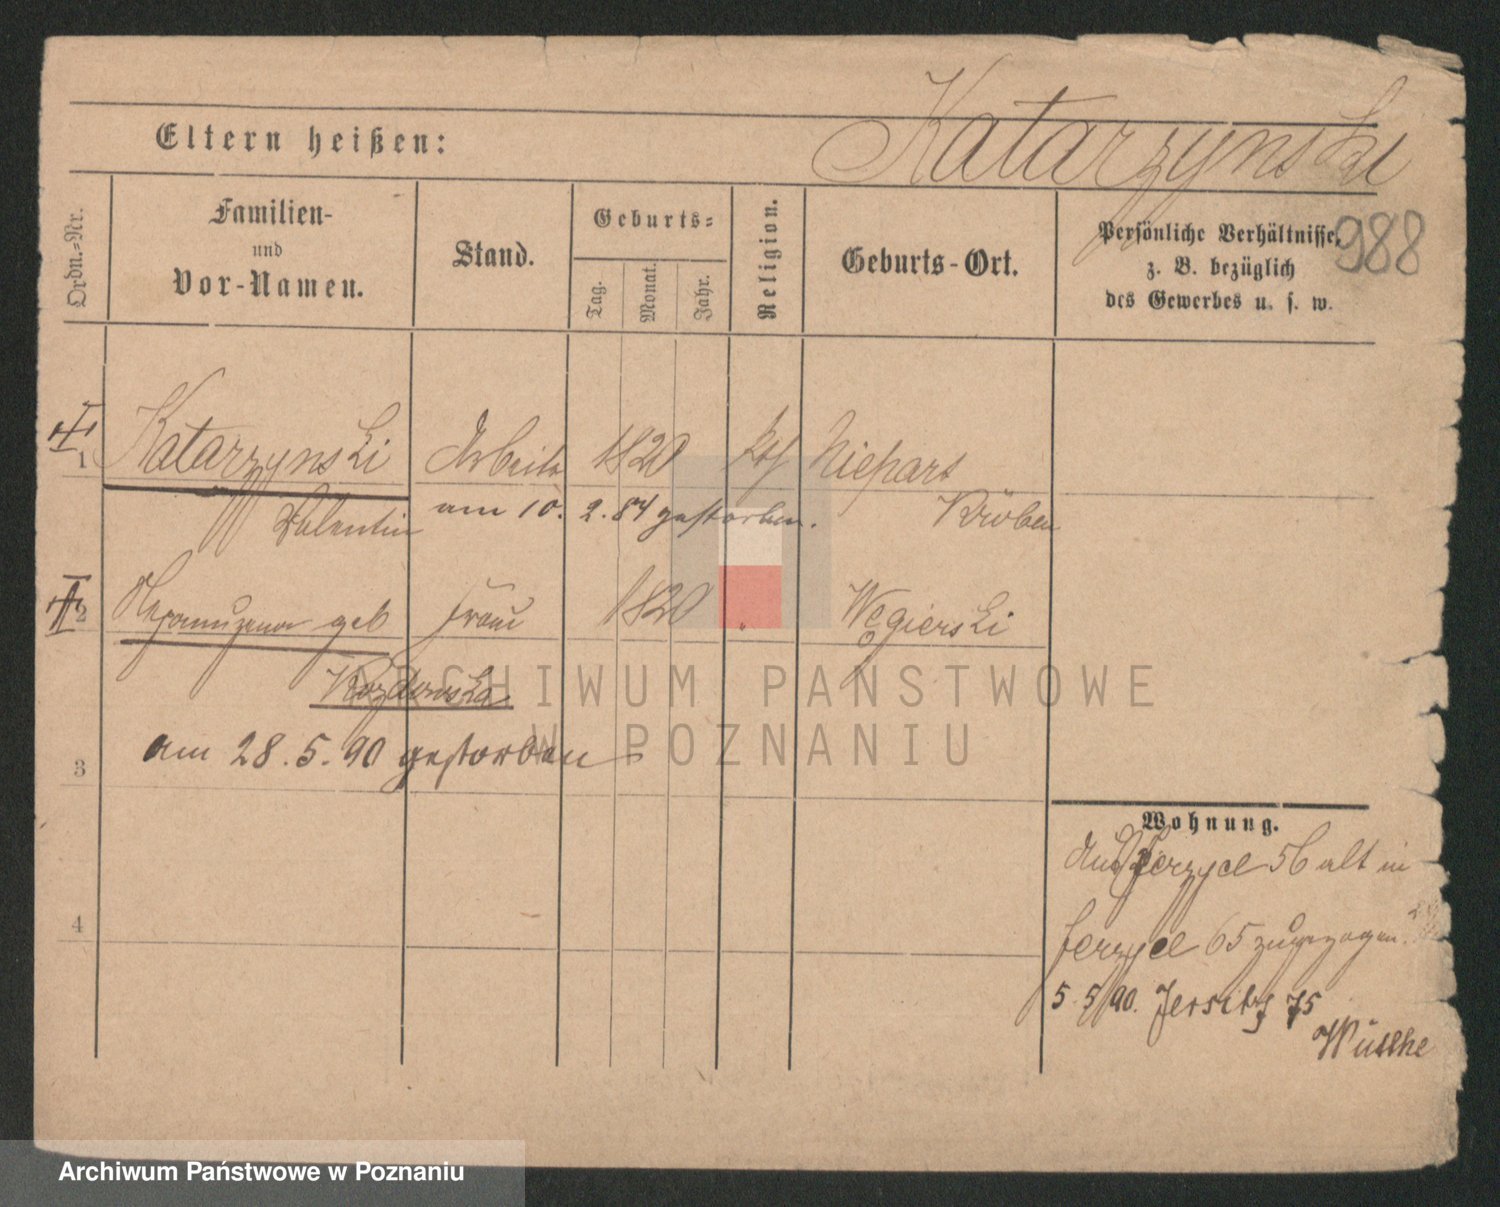 Katarzynski
Eltern heißen:
988
Ordn.-Nr.
Familien-
und
Vor-Namen.
Stand.
Geburts-
Tag.
Monat.
Jahr.
Religion.
Geburts-Ort.
Persönliche Verhältnisse,
z. B. bezüglich
des Gewerbes u. s. w.
1 Katarzynski Arbeiter 1820 kth Niepart
Valentin am 10. 2. 84 gestorben. Kröben
2 Nepomuzena geb Frau 1820 " Węgierski
Kozdowska
ARCHIWUM PAŃSTWOWE
W POZNANIU
3 am 28.5.90 gestorben
Wohnung.
Aus Jerzyce 56 alt in
4
Jerzyce 65 zugezogen.
5.5.90. Jersitz 75
Archiwum Państwowe w Poznaniu